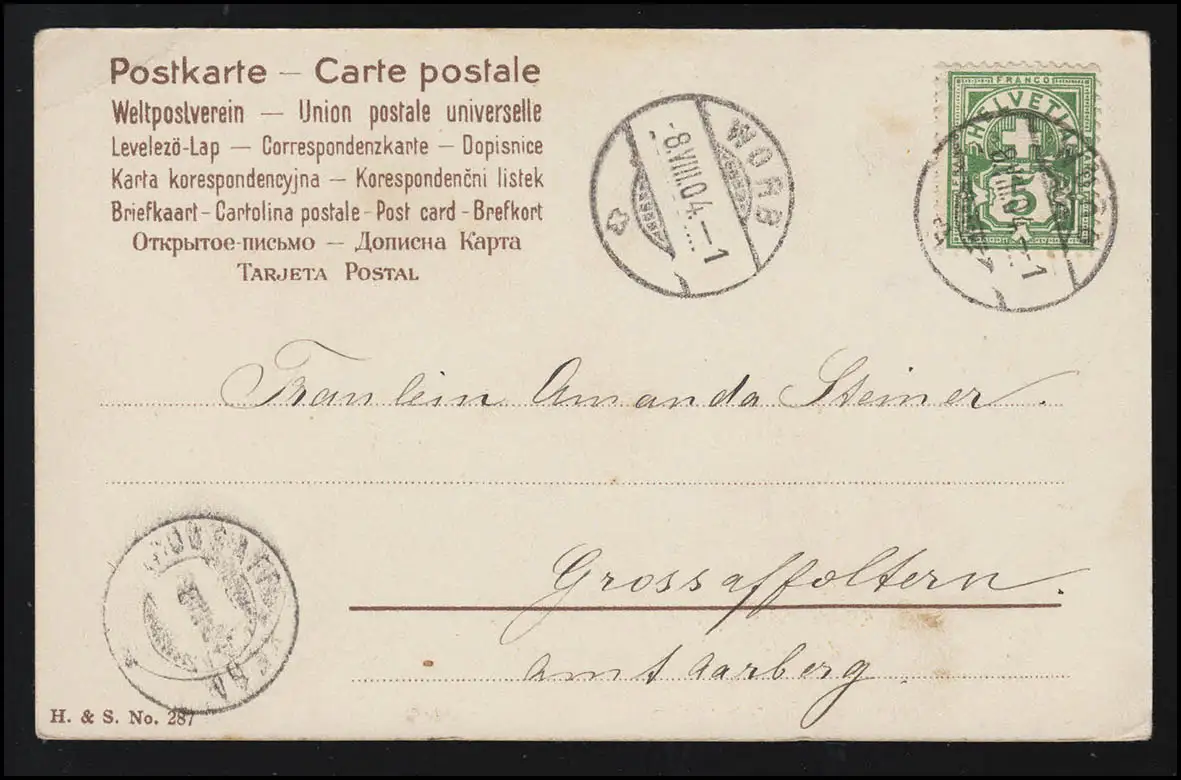 Postkarte – Carte postale
Weltpostverein – Union postale universelle
Levelezö-Lap – Correspondenzkarte – Dopisnice
Karta korespondencyjna – Korespondenčni listek
Briefkaart - Cartolina postale - Post card - Brefkort
Открытое-письмо – Дописна Карта
Tarjeta Postal
WORB
-8.VIII.04.–1
FRANCO
HELVETIA
5
Fraulein Amanda Steiner.
Grossaffoltern.
Amt Aarberg.
H. & S. No. 287